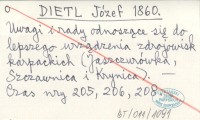 DIETL Józef 1860.
Uwagi i rady odnoszące się do
lepszego urządzenia zdrojowisk
karpackich (Jaszczurówka,
Szczawnica i Krynica). –
Czas nry 205, 206, 208.
ST/011/1091